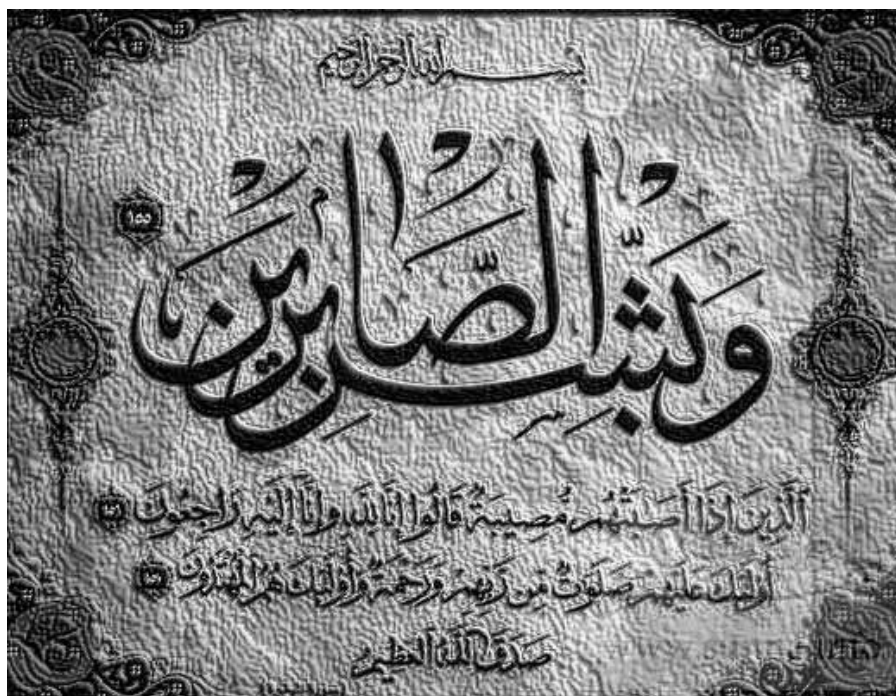 بسم الله الرحمن الرحيم
وَبَشِّرِ الصَّابِرِينَ ١٥٥
ٱلَّذِينَ إِذَا أَصَابَتْهُم مُّصِيبَةٌ قَالُوا إِنَّا لِلَّهِ وَإِنَّا إِلَيْهِ رَاجِعُونَ ١٥٦
أُولَٰئِكَ عَلَيْهِمْ صَلَوَاتٌ مِّن رَّبِّهِمْ وَرَحْمَةٌ وَأُولَٰئِكَ هُمُ الْمُهْتَدُونَ ١٥٧
صدق الله العظيم